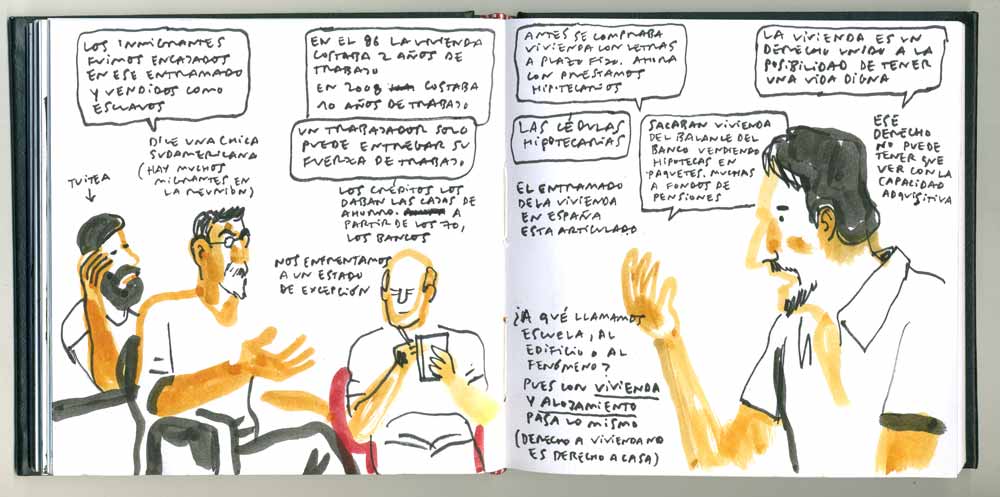 LOS INMIGRANTES
FUIMOS ENCAJADOS
EN ESE ENTRAMADO
Y VENDIDOS COMO
ESCLAVOS
DICE UNA CHICA
SUDAMERICANA
(HAY MUCHOS
MIGRANTES EN
LA REUNIÓN)
TUITEA
EN EL 86 LA VIVIENDA
COSTABA 2 AÑOS DE
TRABAJO
EN 2008 COSTABA
10 AÑOS DE TRABAJO
UN TRABAJADOR SOLO
PUEDE ENTREGAR SU
FUERZA DE TRABAJO
LOS CRÉDITOS LOS
DABAN LAS CAJAS DE
AHORRO. A
PARTIR DE LOS 70,
LOS BANCOS
NOS ENFRENTAMOS
A UN ESTADO
DE EXCEPCIÓN
ANTES SE COMPRABA
VIVIENDA CON LETRAS
A PLAZO FIJO. AHORA
CON PRESTAMOS
HIPOTECARIOS
LAS CÉDULAS
HIPOTECARIAS
SACABAN VIVIENDA
DEL BALANCE DEL
BANCO VENDIENDO
HIPOTECAS EN
PAQUETES. MUCHAS
A FONDOS DE
PENSIONES
EL ENTRAMADO
DE LA VIVIENDA
EN ESPAÑA
ESTA ARTICULADO
LA VIVIENDA ES UN
DERECHO UNIDO A LA
POSIBILIDAD DE TENER
UNA VIDA DIGNA
ESE
DERECHO
NO PUEDE
TENER QUE
VER CON LA
CAPACIDAD
ADQUISITIVA
¿A QUÉ LLAMAMOS
ESCUELA, AL
EDIFICIO O AL
FENÓMENO?
PUES CON VIVIENDA
Y ALOJAMIENTO
PASA LO MISMO
(DERECHO A VIVIENDA NO
ES DERECHO A CASA)